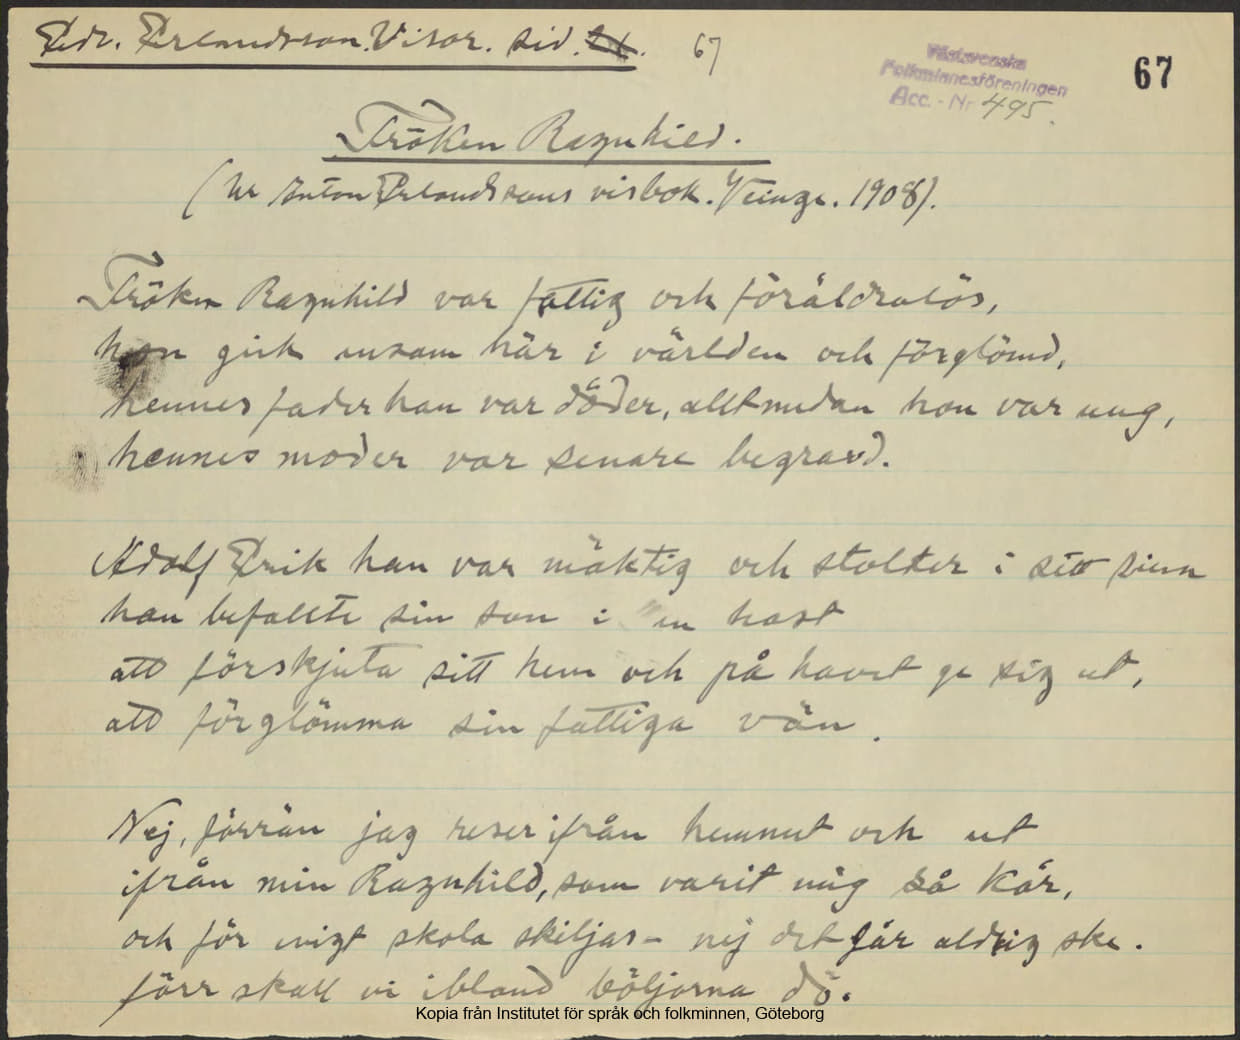 Edv. Erlandsson. Visor. sid. 67
67
Västsvenska
Folkminnesföreningen
Acc. - Nr 495.
Fröken Ragnhild.
(Ur Anton Erlandssons visbok. Veinge. 1908).
Fröken Ragnhild var fattig och föräldralös,
hon gick ensam här i världen och förglömd,
hennes fader han var döder, alltmedan hon var ung,
hennes moder var senare begravd.
Adolf Erik han var mäktig och stolter i sitt sinn
han befallte sin son i en hast
att förskjuta sitt hem och på havet ge sig ut,
att förglömma sin fattiga vän.
Nej, förrän jag reser ifrån hemmet och ut
ifrån min Ragnhild, som varit mig så kär,
och för evigt skola skiljas - nej det får aldrig ske.
förr skall vi ibland böljorna dö.
Kopia från Institutet för språk och folkminnen, Göteborg